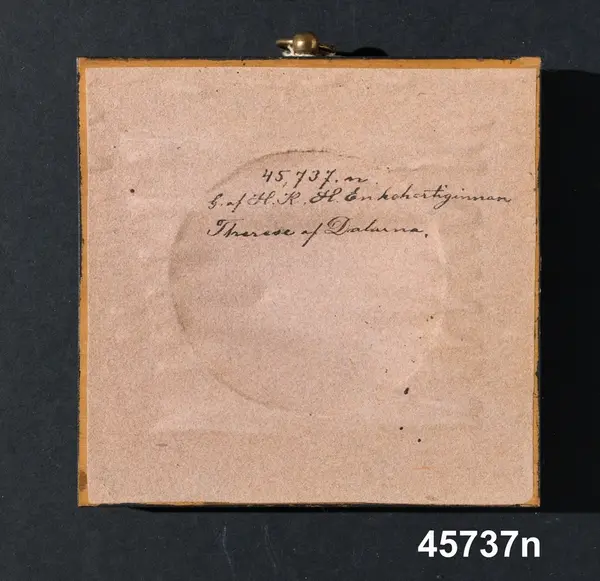 45,737.n
G. af H. K. H. Enkehertiginnan
Therese af Dalarna.
45737n